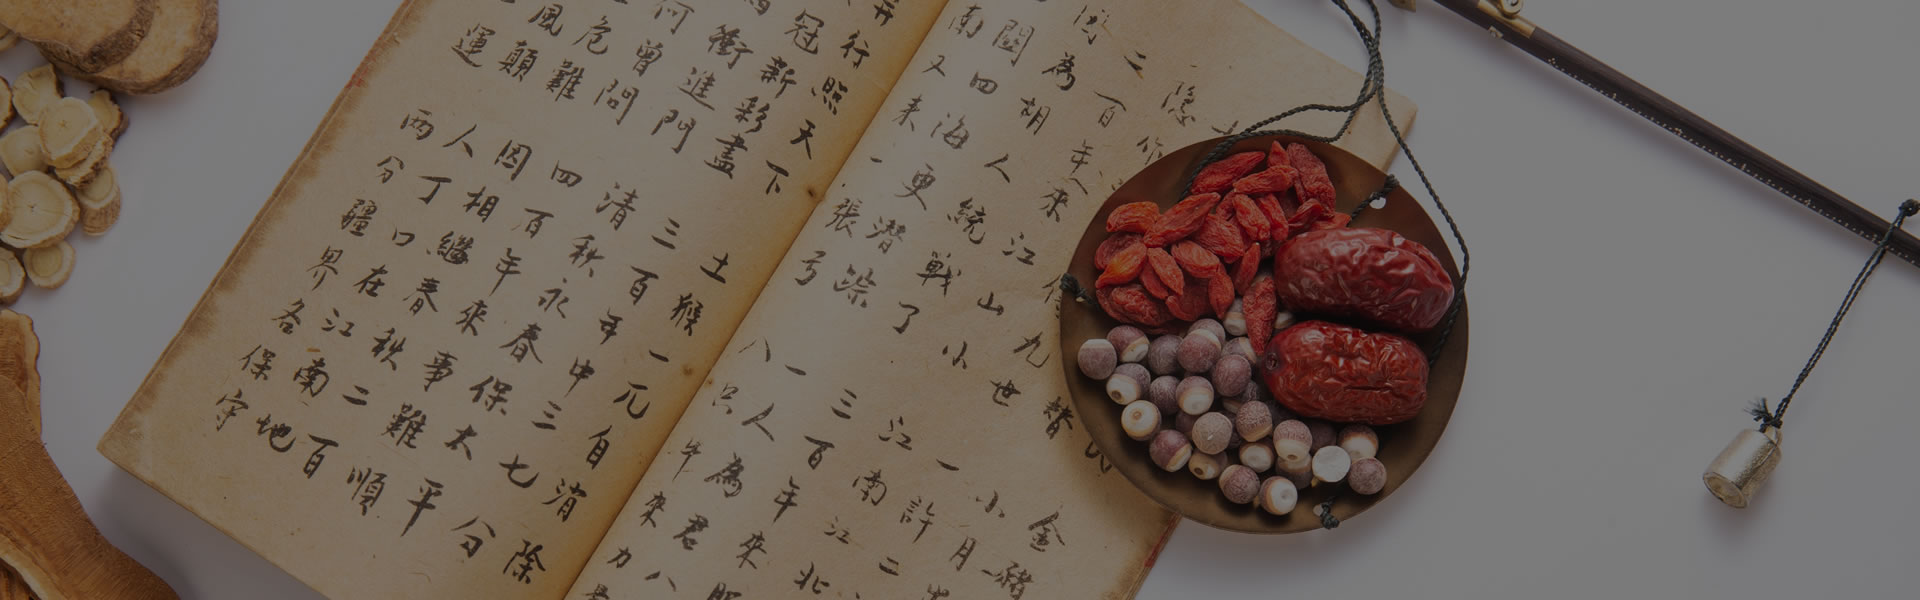 隐
二百年來江山小
為胡人統戰了
閩四海更潜踪
南又来一張弓
九世
金豬
小月
一許二
江南江北
三百年來
一人為君八
八只牛来力
行照天下
冠新彩盡
衝進門
何曾問
危難
風顛
運
土猴一元自消除
三百年中三七分
清秋永春保太平
四百年來事難順
因相繼春秋二百
人丁口在江南地
两分疆界各保守